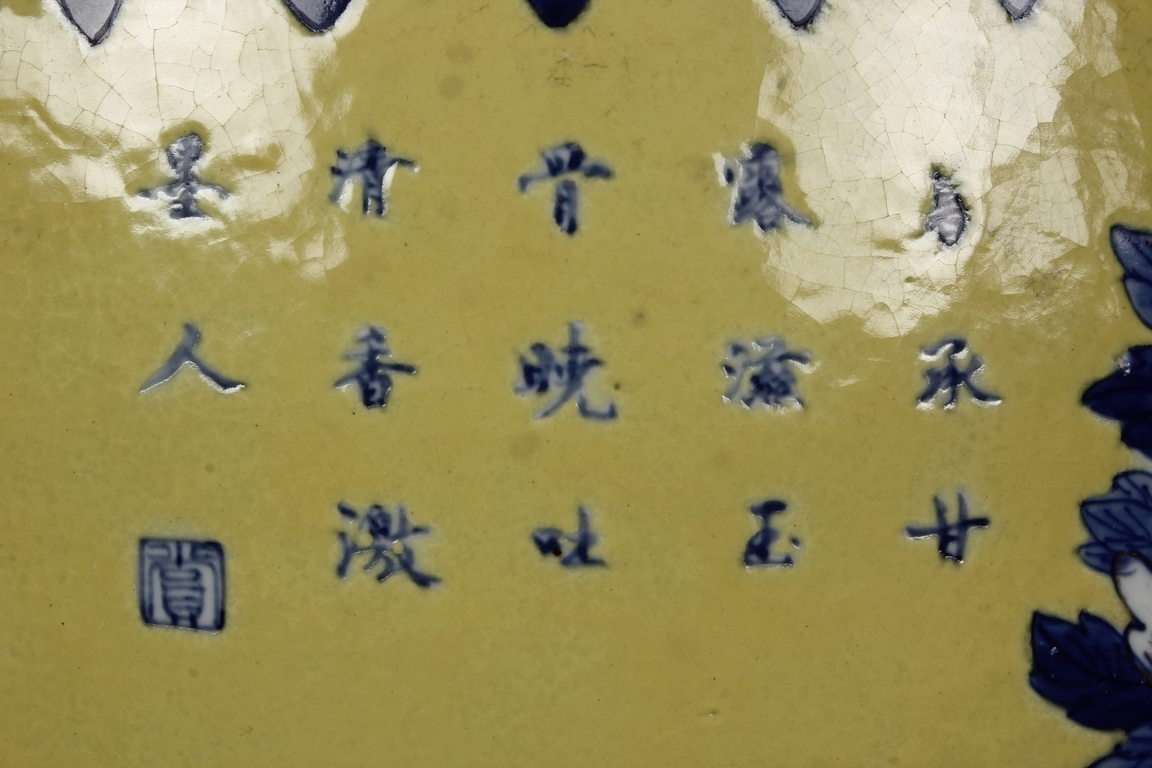 承甘
露滋玉
骨曉吐
清香激
墨人
賞